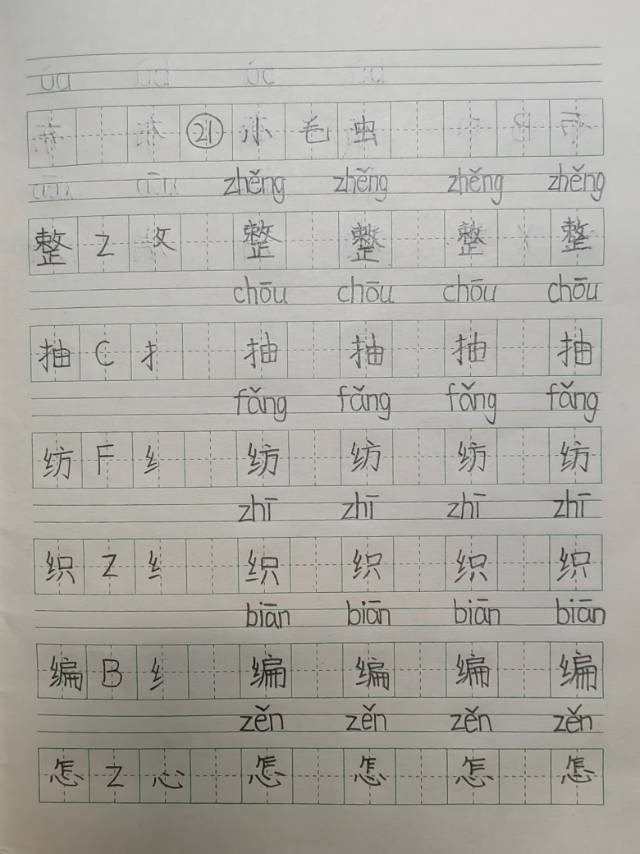 ㉑ 小毛虫
zhěng zhěng zhěng zhěng
整 Z 攵 整 整 整 整
chōu chōu chōu chōu
抽 C 扌 抽 抽 抽 抽
fǎng fǎng fǎng fǎng
纺 F 纟 纺 纺 纺 纺
zhī zhī zhī zhī
织 Z 纟 织 织 织 织
biān biān biān biān
编 B 纟 编 编 编 编
zěn zěn zěn zěn
怎 Z 心 怎 怎 怎 怎